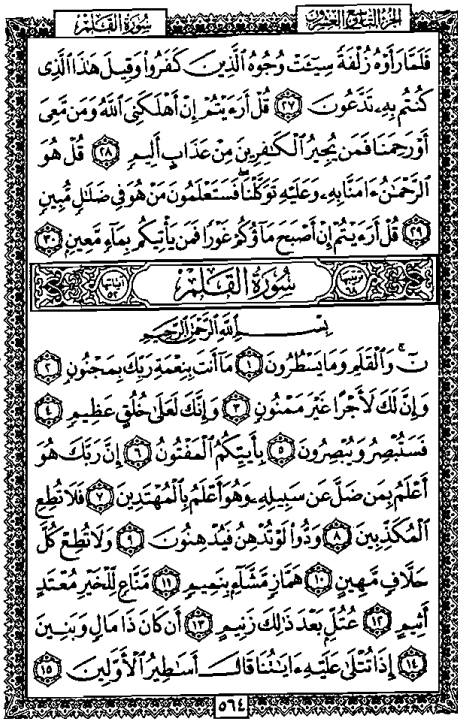 سُورَةُ القَلَمِ
الجزء التاسع والعشرون
فَلَمَّا رَأَوْهُ زُلْفَةً سِيٓـَٔتْ وُجُوهُ ٱلَّذِينَ كَفَرُوا۟ وَقِيلَ هَٰذَا ٱلَّذِى
كُنتُم بِهِۦ تَدَّعُونَ ٢٧ قُلْ أَرَءَيْتُمْ إِنْ أَهْلَكَنِىَ ٱللَّهُ وَمَن مَّعِىَ
أَوْ رَحِمَنَا فَمَن يُجِيرُ ٱلْكَٰفِرِينَ مِنْ عَذَابٍ أَلِيمٍ ٢٨ قُلْ هُوَ
ٱلرَّحْمَٰنُ ءَامَنَّا بِهِۦ وَعَلَيْهِ تَوَكَّلْنَا ۖ فَسَتَعْلَمُونَ مَنْ هُوَ فِى ضَلَٰلٍ مُّبِينٍ
٢٩ قُلْ أَرَءَيْتُمْ إِنْ أَصْبَحَ مَآؤُكُمْ غَوْرًا فَمَن يَأْتِيكُم بِمَآءٍ مَّعِينٍ ٣٠
سُورَةُ القَلَمِ
بِسْمِ ٱللَّهِ ٱلرَّحْمَٰنِ ٱلرَّحِيمِ
نٓ ۚ وَٱلْقَلَمِ وَمَا يَسْطُرُونَ ١ مَآ أَنتَ بِنِعْمَةِ رَبِّكَ بِمَجْنُونٍ ٢
وَإِنَّ لَكَ لَأَجْرًا غَيْرَ مَمْنُونٍ ٣ وَإِنَّكَ لَعَلَىٰ خُلُقٍ عَظِيمٍ ٤
فَسَتُبْصِرُ وَيُبْصِرُونَ ٥ بِأَييِّكُمُ ٱلْمَفْتُونُ ٦ إِنَّ رَبَّكَ هُوَ
أَعْلَمُ بِمَن ضَلَّ عَن سَبِيلِهِۦ وَهُوَ أَعْلَمُ بِٱلْمُهْتَدِينَ ٧ فَلَا تُطِعِ
ٱلْمُكَذِّبِينَ ٨ وَدُّوا۟ لَوْ تُدْهِنُ فَيُدْهِنُونَ ٩ وَلَا تُطِعْ كُلَّ
حَلَّافٍ مَّهِينٍ ١٠ هَمَّازٍ مَّشَّآءٍۭ بِنَمِيمٍ ١١ مَّنَّاعٍ لِّلْخَيْرِ مُعْتَدٍ
أَثِيمٍ ١٢ عُتُلٍّۭ بَعْدَ ذَٰلِكَ زَنِيمٍ ١٣ أَن كَانَ ذَا مَالٍ وَبَنِينَ
١٤ إِذَا تُتْلَىٰ عَلَيْهِ ءَايَٰتُنَا قَالَ أَسَٰطِيرُ ٱلْأَوَّلِينَ ١٥
٥٦٤